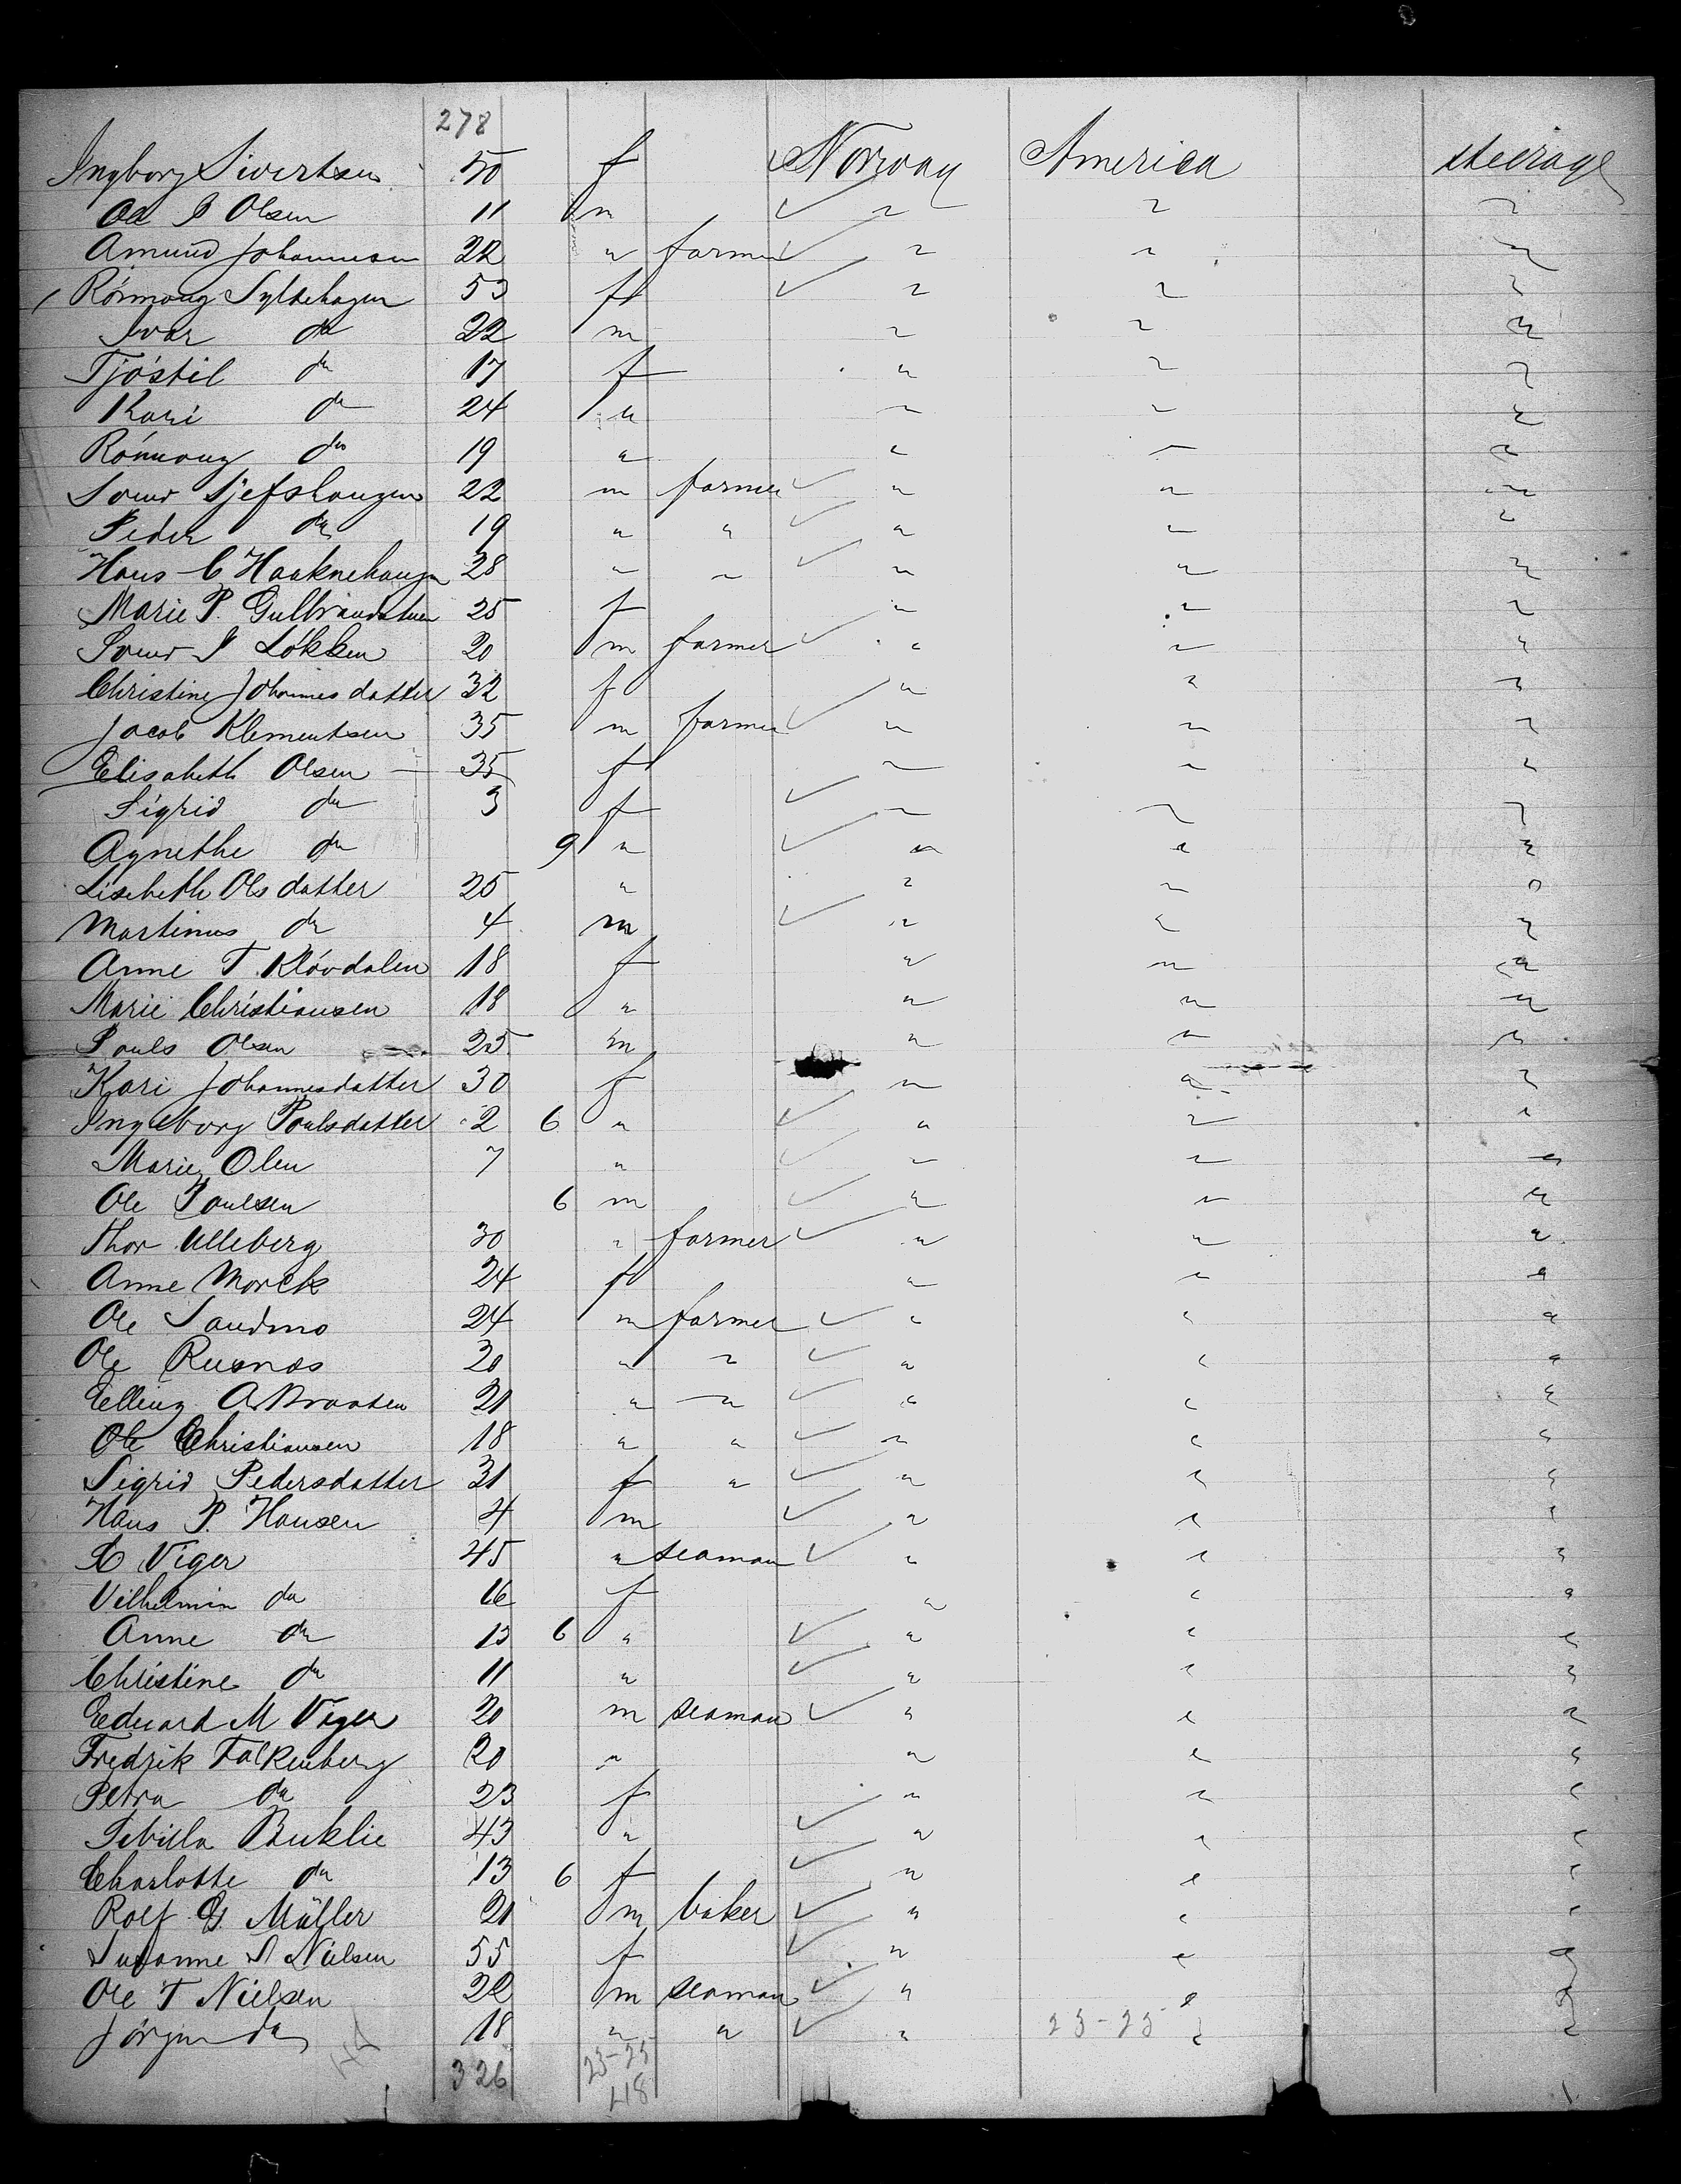 278
Ingborg Sivertsen 50 f Norway America steerage
Ole Olsen 11 m " " "
Amund Johannesen 22 " farmer " " "
Rönnoug Syltehagen 53 f " " "
Ivar do 22 m " " "
Tjöstil do 17 f " " "
Kari do 24 " " " "
Rönnoug do 19 " " " "
22 m farmer " " "
Peder do 19 " " " " "
Hans C Haaknehaugen 28 " " " " "
Marie P. 25 f " " "
Lökken 20 m farmer " " "
Christine Johannesdatter 32 f " " "
Jacob Klementsen 35 m farmer " " "
Elisabeth Olsen 35 f " " "
Sigrid do 3 f " " "
Agnethe do 9 " " " "
Lisebeth Olsdatter 25 " " " "
Martinus do 4 m " " "
Anne T. Klövdalen 18 f " " "
Marie Christiansen 18 " " " "
Pouls Olsen 25 m " " "
Kari Johannesdatter 30 f " " "
Ingeborg Poulsdatter 2 6 " " " "
Marie Olen 7 " " " "
Ole Poulsen 6 m " " "
Thor Ulleberg 30 " farmer " " "
Anne Morck 24 f " " "
Ole Sandmo 24 m farmer " " "
Ole Rusnæs 20 " " " " "
Elling A Braaten 21 " " " " "
Ole Christiansen 18 " " " " "
Sigrid Pedersdatter 31 f " " " "
Hans P. Hansen 4 m " " "
Viger 45 " seaman " " "
Vilhelmin do 16 f " " "
Anne do 13 6 " " " "
Christine do 11 " " " "
Eduard M Viger 20 m seaman " " "
Fredrik Falkenberg 20 " " " "
Petra do 23 f " " "
Sibilla Buklie 43 " " " "
Charlotte do 13 6 f " " "
Rolf G. Müller 21 m baker " " "
Susanne Nielsen 55 f " " "
Ole T Nielsen 22 m seaman " " "
Jörgen do 18 " " " 23-25 " "
326 23-25
418